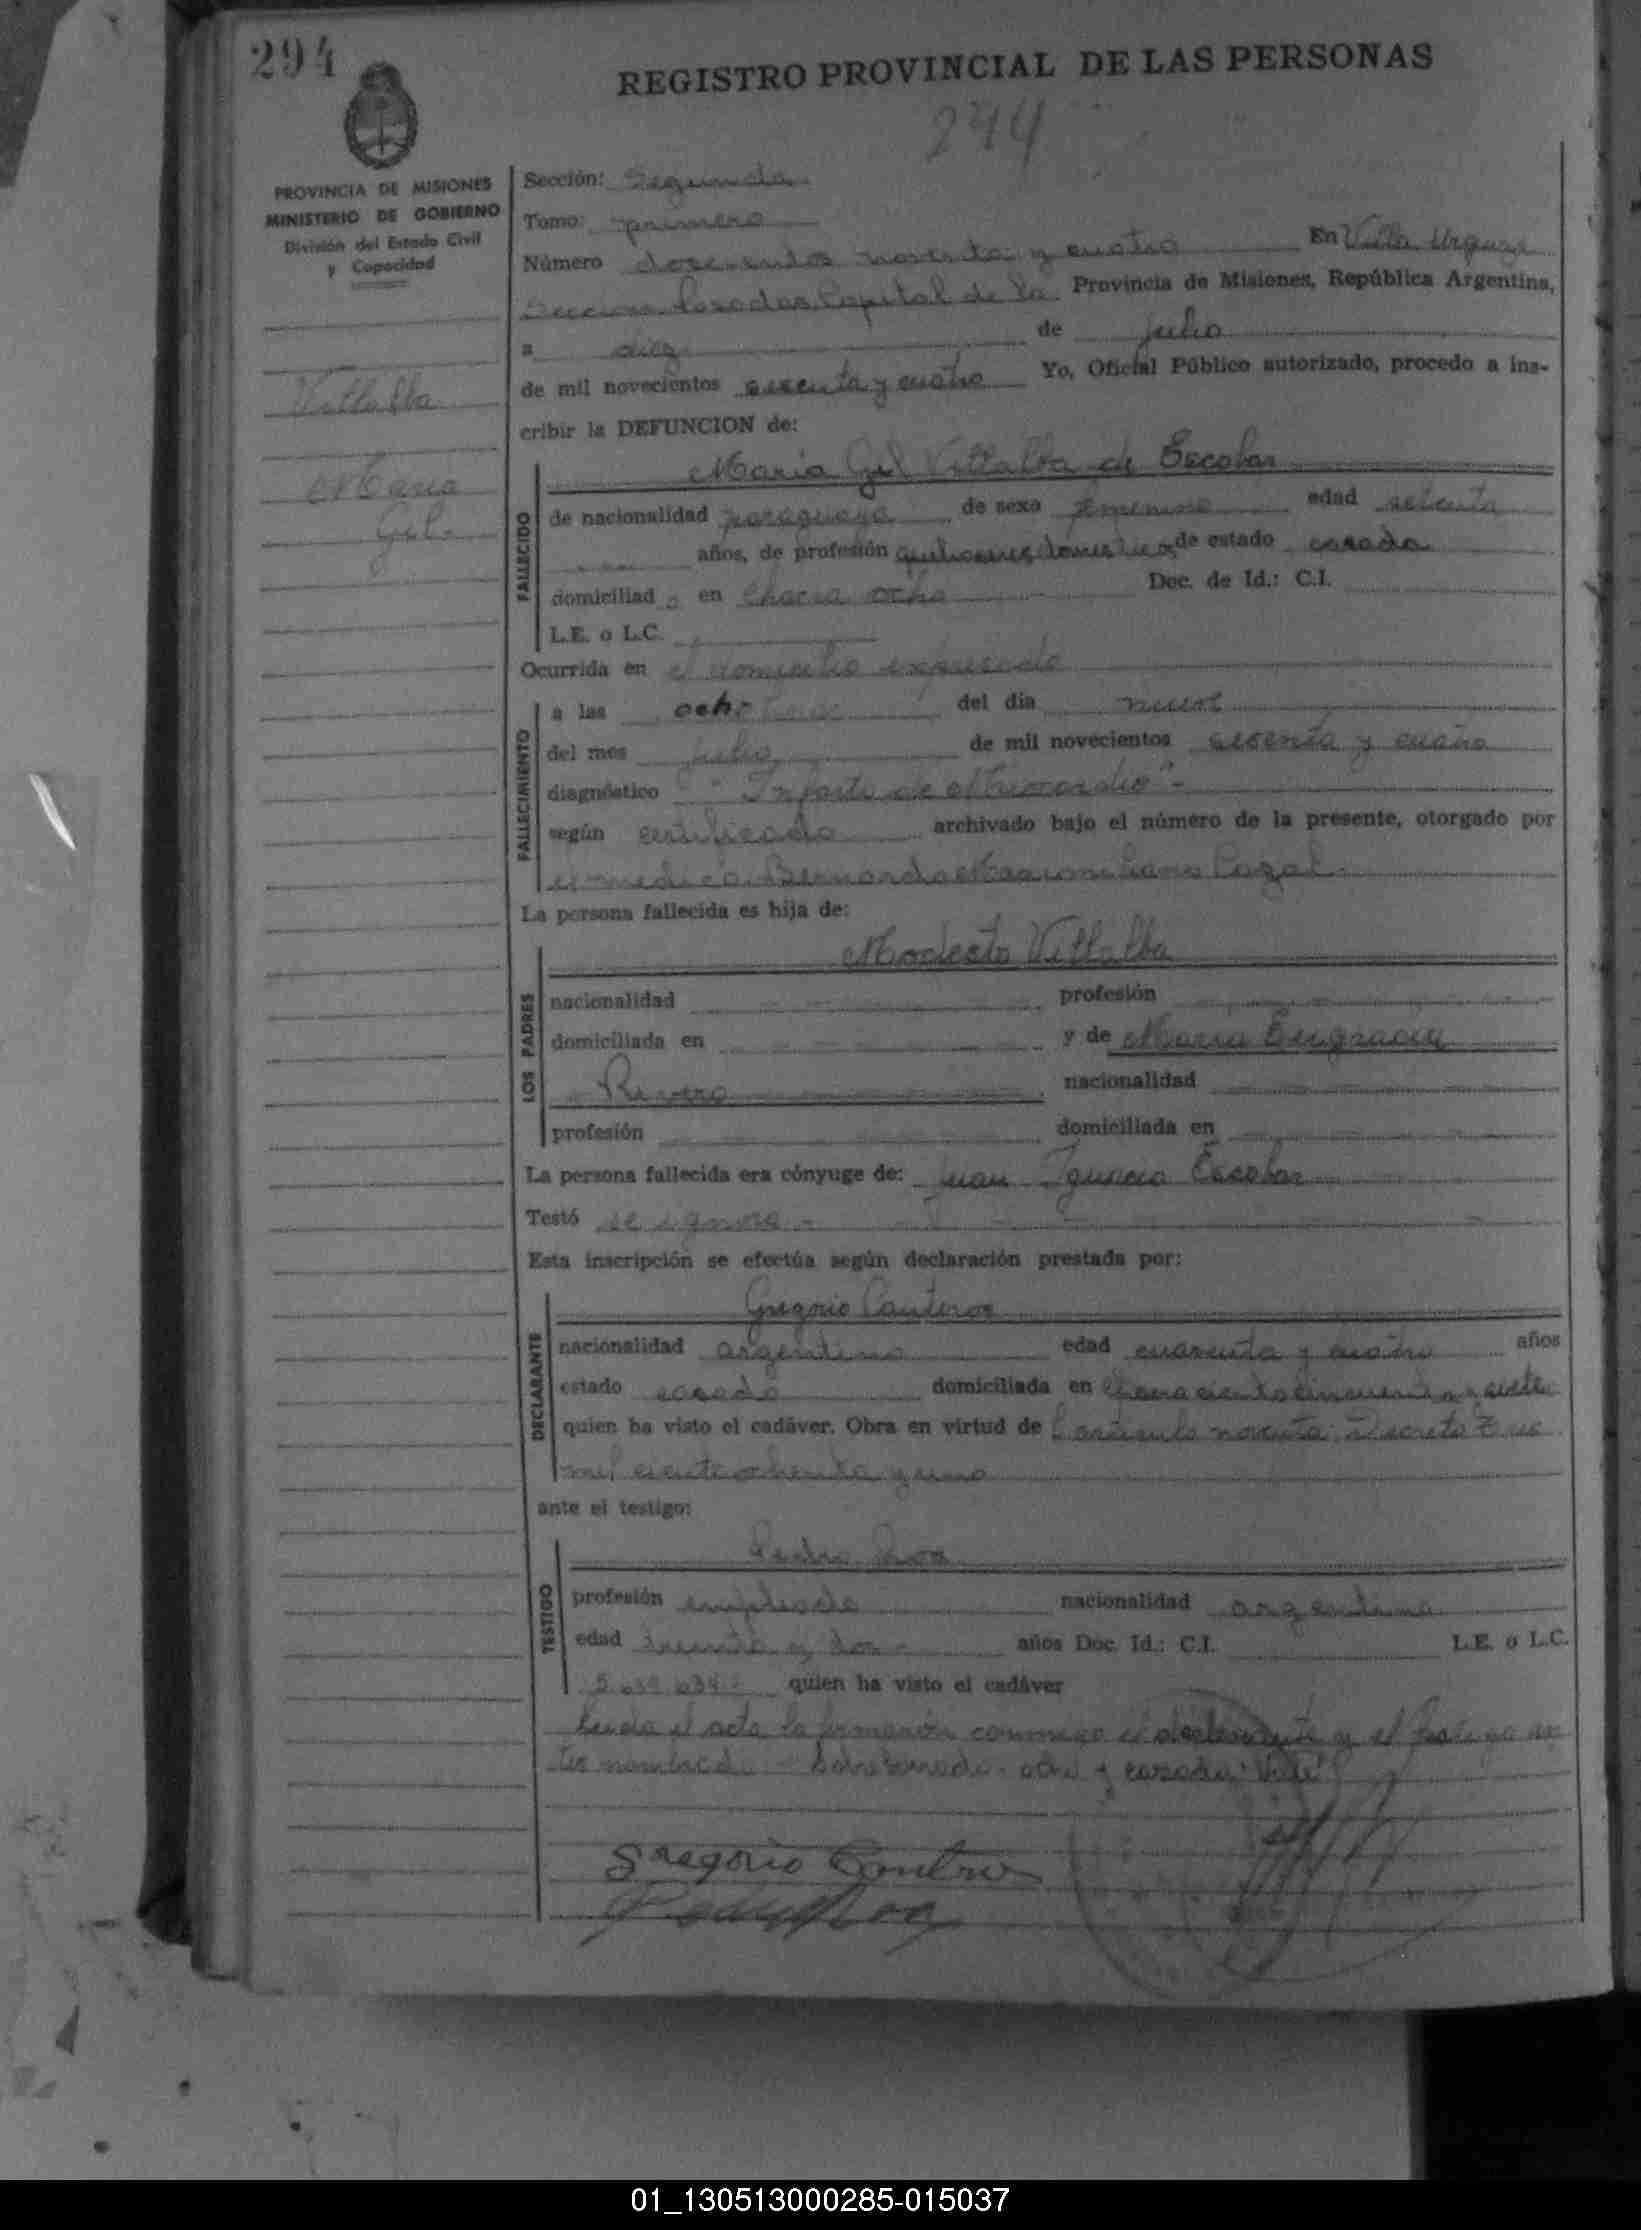 294
REGISTRO PROVINCIAL DE LAS PERSONAS
294
PROVINCIA DE MISIONES
MINISTERIO DE GOBIERNO
División del Estado Civil
y Capacidad
Villalba
Maria
Gil.-
Sección: Segunda
Tomo: primero
Número doscientos noventa y cuatro En Villa Urquiza
Seccion Posadas Capital de la Provincia de Misiones, República Argentina,
a diez de julio
de mil novecientos sesenta y cuatro Yo, Oficial Público autorizado, procedo a ins-
cribir la DEFUNCION de:
FALLECIDO
Maria Gil Villalba de Escobar
de nacionalidad paraguaya de sexo femenino edad setenta
años, de profesión quehaceres domesticos de estado casada
domiciliad a en Chacra ocho Doc. de Id.: C.I.
L.E. o L.C.
Ocurrida en el domicilio expresado
FALLECIMIENTO
a las ocho horas del dia nueve
del mes julio de mil novecientos sesenta y cuatro
diagnóstico "Infarto de Miocardio".-
según certificado archivado bajo el número de la presente, otorgado por
el medico Bernardo Maximiliano Cazal.
La persona fallecida es hija de:
LOS PADRES
Modesto Villalba
nacionalidad profesión
domiciliada en y de Maria Engracia
Rivero nacionalidad
profesión domiciliada en
La persona fallecida era cónyuge de: Juan Ignacio Escobar
Testó se ignora.-
Esta inscripción se efectúa según declaración prestada por:
DECLARANTE
Gregorio Canteros
nacionalidad argentino edad cuarenta y cuatro años
estado casado domiciliada en Chacra ciento cincuenta y siete
quien ha visto el cadáver. Obra en virtud de articulo noventa Decreto Tres
mil ciento ochenta y uno
ante el testigo:
TESTIGO
Pedro Roa
profesión empleado nacionalidad argentino
edad treinta y dos años Doc. Id.: C.I. L.E. o L.C.
5.659.634 quien ha visto el cadáver
Leida el acta la firmaron conmigo el declarante y el testigo an-
tes nombrado.- Sobrerraspado: ocho y casada: Vale
Gregorio Canteros
Pedro Roa
01_130513000285-015037